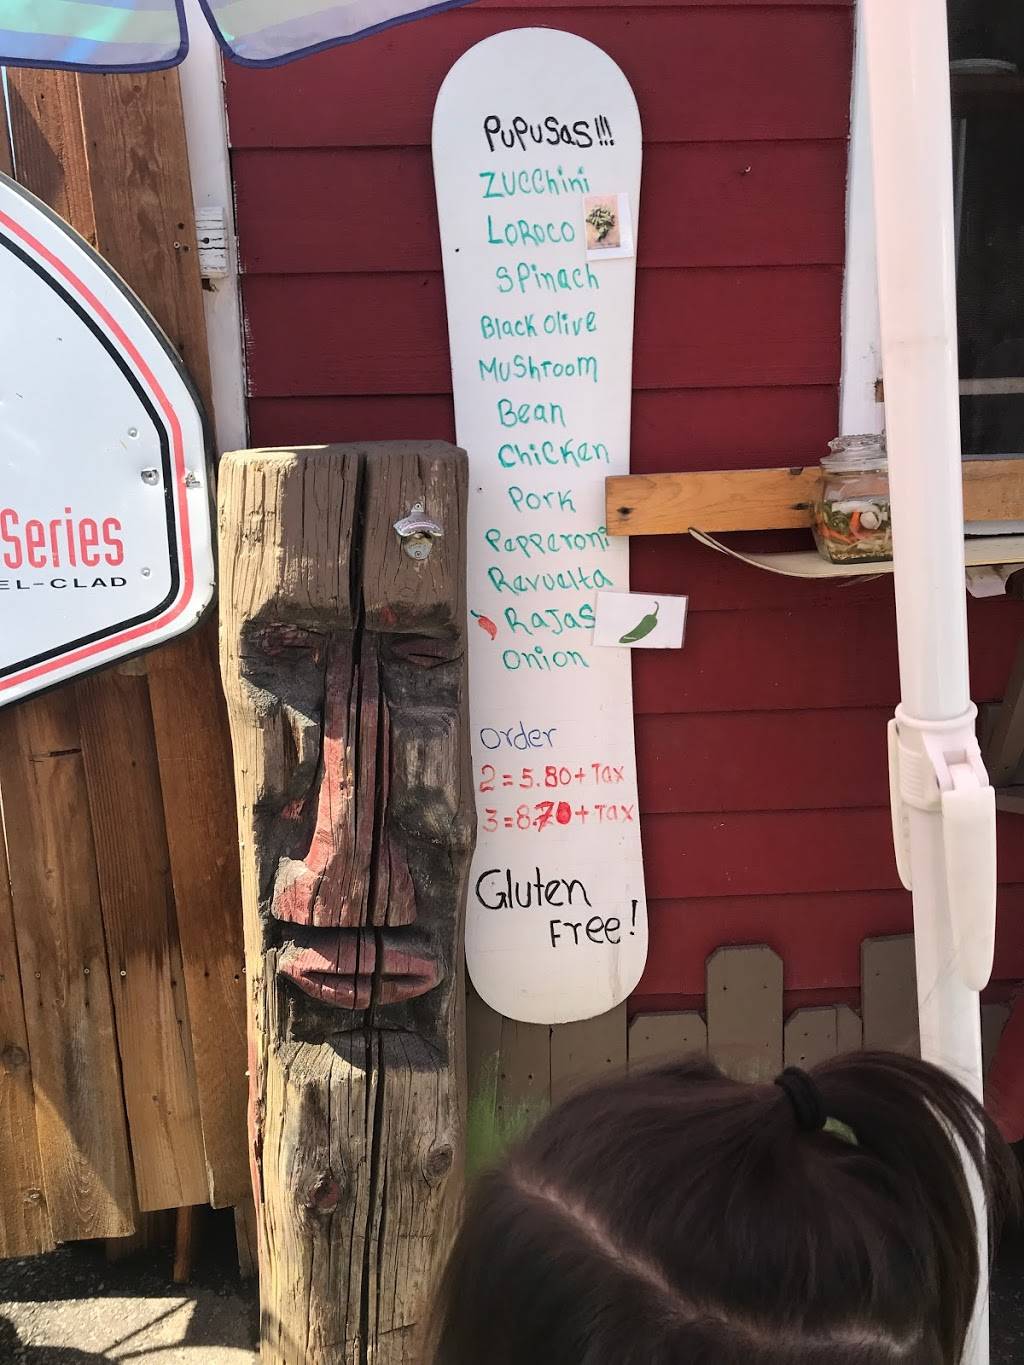 PUPUSAS!!!
ZUCChini
LOROCO
SPinach
Black Olive
MUShroom
Bean
ChiCKen
PORK
Pepperoni
Revuelta
RAJAS
Onion
Order
2 = 5.80 + Tax
3 = 8.70 + Tax
Gluten
Free!
Series
EL-CLAD